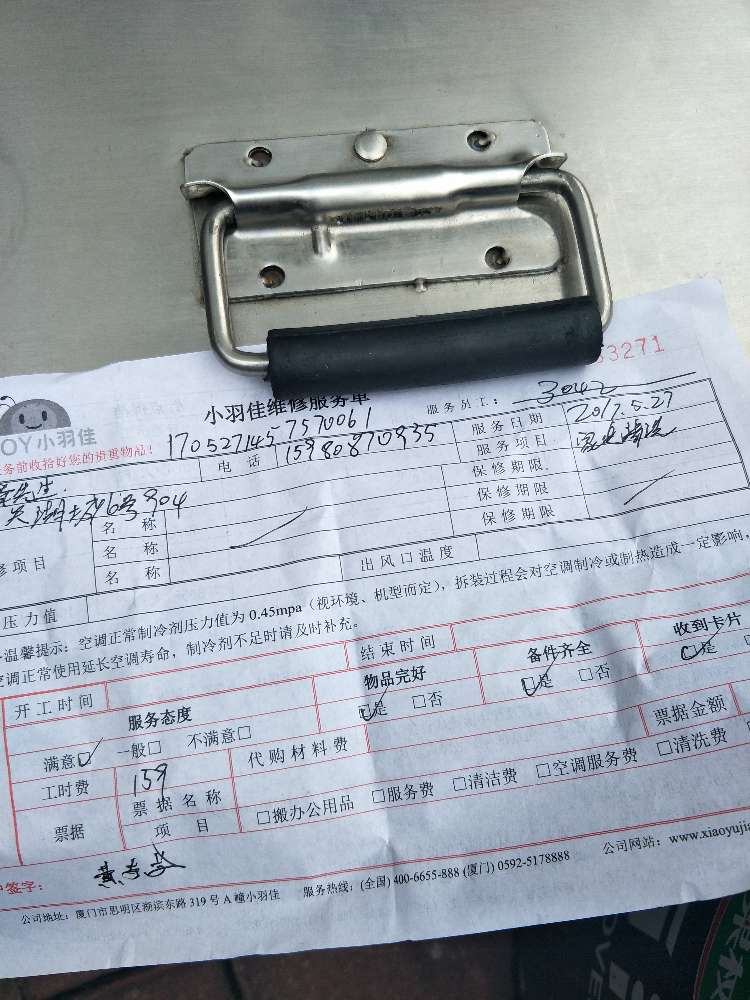 3271
小羽佳维修服务单
服务员工： 3042
JOY小羽佳
务前收拾好您的贵重物品！ 170527145757006１
电话 15980870935 服务日期 2017.5.27
服务项目 家电清洗
保修期限
名称 保修期限
名称 保修期限
名称
修项目 出风口温度
压力值
温馨提示：空调正常制冷剂压力值为 0.45mpa（视环境、机型而定），拆装过程会对空调制冷或制热造成一定影响，
空调正常使用延长空调寿命，制冷剂不足时请及时补充。
开工时间 结束时间
服务态度 物品完好 备件齐全 收到卡片
满意☑ 一般□ 不满意□ ☑是 □否 ☑是 □否 ☑是
工时费 159 代购材料费 票据金额
票据 票据名称
项目 □搬办公用品 □服务费 □清洁费 □空调服务费 □清洗费
户签字：
公司地址：厦门市思明区湖滨东路 319 号 A 幢小羽佳 服务热线：(全国) 400-6655-888 (厦门) 0592-5178888 公司网站：www.xiaoyujia